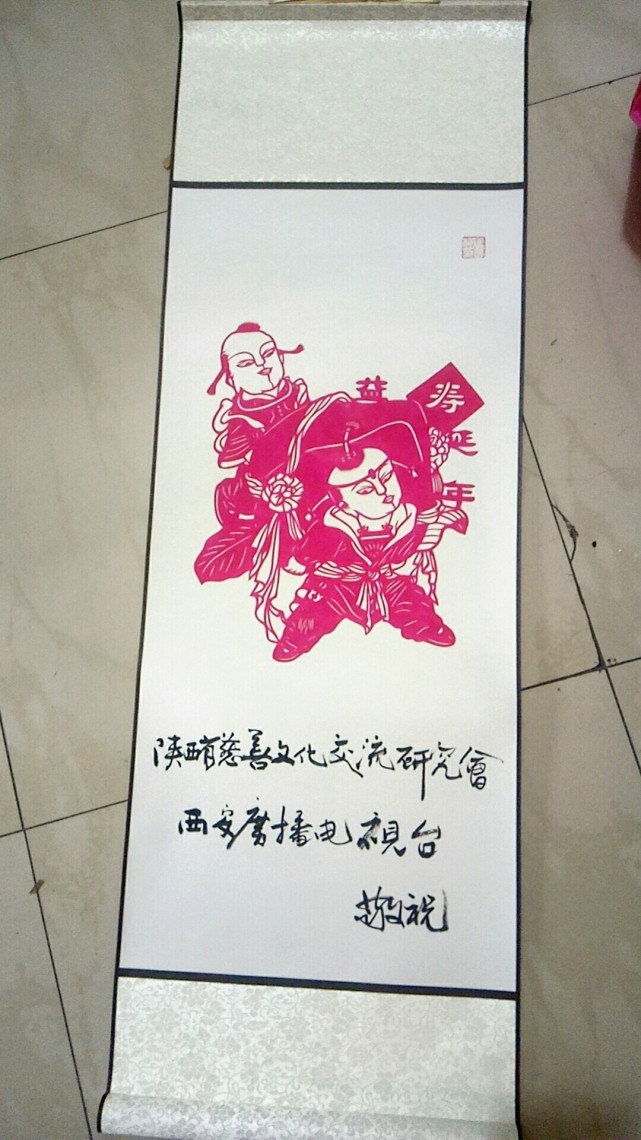 益寿延年
陕西省慈善文化交流研究會
西安廣播电視台
敬祝